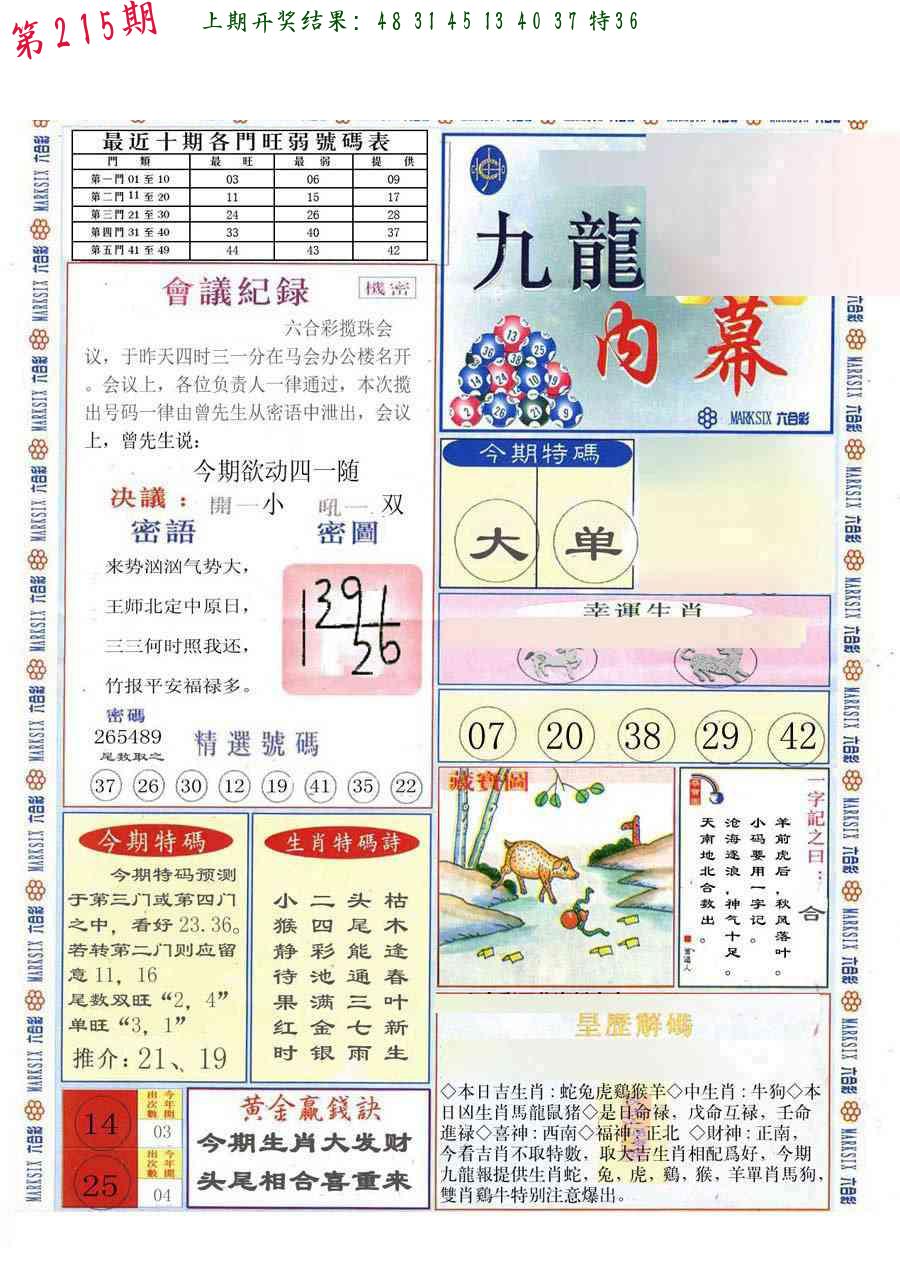 第215期
上期开奖结果：48 31 45 13 40 37 特36
最近十期各門旺弱號碼表
門 類 最 旺 最 弱 提 供
第一門 01 至 10 03 06 09
第二門 11 至 20 11 15 17
第三門 21 至 30 24 26 28
第四門 31 至 40 33 40 37
第五門 41 至 49 44 43 42
會議紀録
機密
六合彩揽珠会
议，于昨天四时三一分在马会办公楼名开
。会议上，各位负责人一律通过，本次揽
出号码一律由曾先生从密语中泄出，会议
上，曾先生说：
今期欲动四一随
决議：開一小 吼一 双
密語
密圖
来势汹汹气势大，
王师北定中原日，
三三何时照我还，
竹报平安福禄多。
1391
26
密碼
265489
尾数取之
精選號碼
37 26 30 12 19 41 35 22
九龍
内幕
13
36 38 25
14 24 10 19
2 26 21 9
MARKSIX 六合彩
今期特碼
大 单
幸運生肖
07 20 38 29 42
藏寶圖
一字記之曰：
合
羊前虎后，秋风落叶。
小码要用一字记。
沧海逐浪，神气十足。
天南地北合数出。
今期特碼
今期特码预测
于第三门或第四门
之中，看好 23.36。
若转第二门则应留
意 11，16
尾数双旺“2，4”
单旺“3，1”
推介：21、19
生肖特碼詩
枯木逢春叶新生
头尾能通三七雨
二四彩池满金银
小猴静待果红时
14
今年開出次數
03
25
今年開出次數
04
黄金赢錢訣
今期生肖大发财
头尾相合喜重来
呈歷解碼
◇本日吉生肖：蛇兔虎鷄猴羊◇中生肖：牛狗◇本
日凶生肖馬龍鼠猪◇是日命禄，戊命互禄，壬命
進禄◇喜神：西南◇福神：正北 ◇財神：正南，
今看吉肖不取特數，取大吉生肖相配爲好，今期
九龍報提供生肖蛇，兔，虎，鷄，猴，羊單肖馬狗，
雙肖鷄牛特别注意爆出。
MARKSIX 六合彩